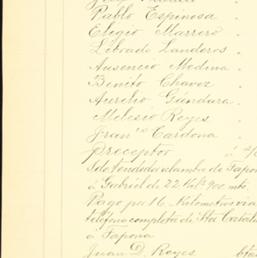 Pablo Espinosa
Eligio Marrero
Librado Landeros
Ausencio Medina
Benito Chavez
Aurelio Gándara
Melesio Reyes
Fran.co Cardona
Preceptor
Solo tendido alambre de Sapona
á Gabriel de 22 Kil.s 900 mts.
Pago por 16 Kilometros via
teléfono completa de Sta Catalina
á Sapona
Juan D. Reyes